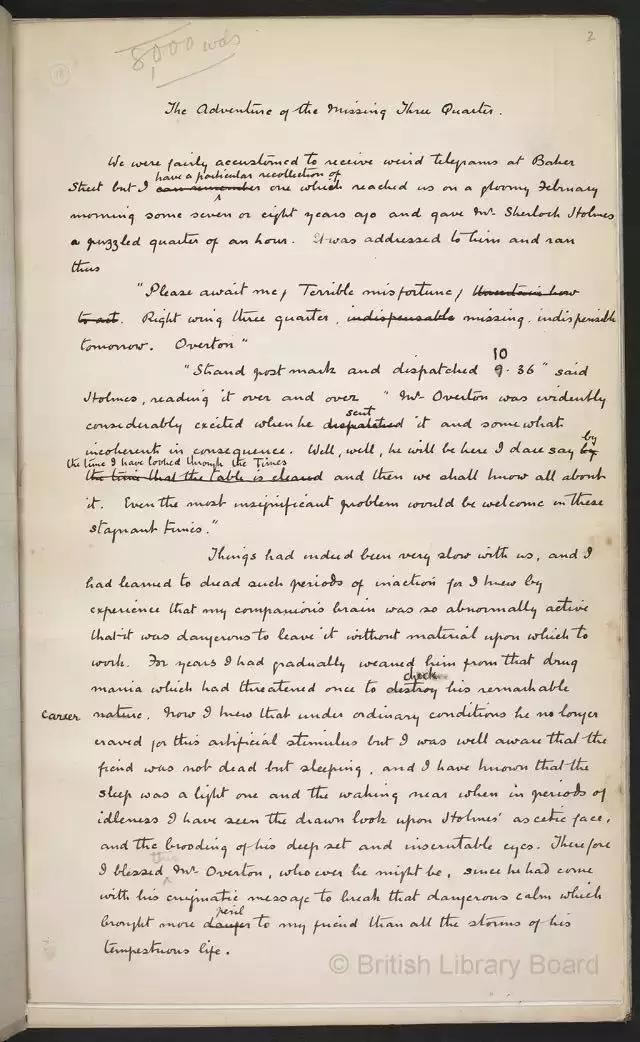 8,000 wds
2
The Adventure of the Missing Three Quarter.
We were fairly accustomed to receive weird telegrams at Baker
have a particular recollection of
Street but I can remember one which reached us on a gloomy February
morning some seven or eight years ago and gave Mr Sherlock Holmes
a puzzled quarter of an hour. It was addressed to him and ran
thus
"Please await me, Terrible misfortune, Uncertain how
to act. Right wing three quarter, indispensable missing. indispensable
tomorrow. Overton"
10
"Strand post mark and dispatched 9.36" said
Holmes, reading it over and over "Mr Overton was evidently
sent
considerably excited when he dispatched it and somewhat
incoherent in consequence. Well, well, he will be here I dare say by
by
the time I have looked through the Times
the time that the table is cleared and then we shall know all about
it. Even the most insignificant problem would be welcome in these
stagnant times."
Things had indeed been very slow with us, and I
had learned to dread such periods of inaction for I knew by
experience that my companion's brain was so abnormally active
that it was dangerous to leave it without material upon which to
work. For years I had gradually weaned him from that drug
check
mania which had threatened once to destroy his remarkable
career nature. Now I knew that under ordinary conditions he no longer
craved for this artificial stimulus but I was well aware that the
fiend was not dead but sleeping, and I have known that the
sleep was a light one and the waking near when in periods of
idleness I have seen the drawn look upon Holmes' ascetic face,
and the brooding of his deep set and inscrutable eyes. Therefore
this
I blessed Mr Overton, whoever he might be, since he had come
with his enigmatic message to break that dangerous calm which
peril
brought more danger to my friend than all the storms of his
tempestuous life.
© British Library Board